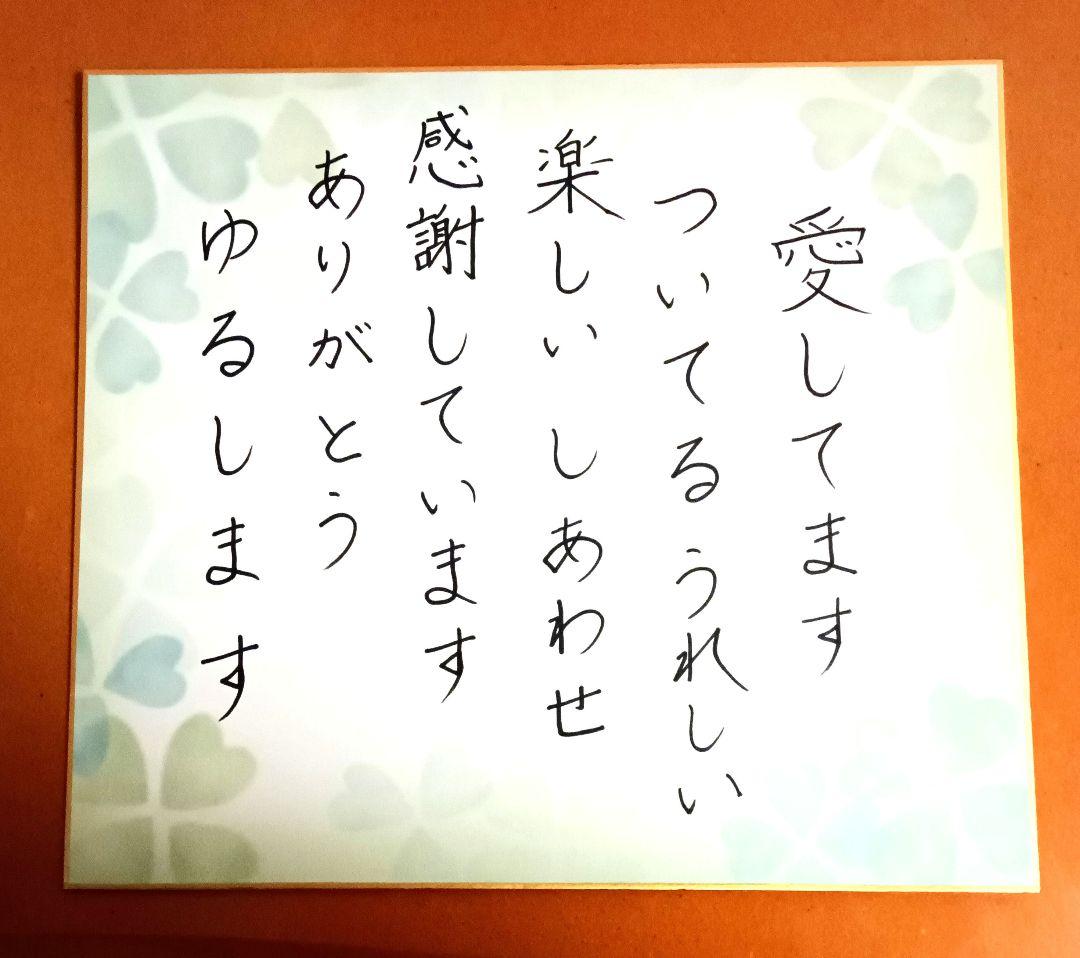 愛してます
ついてる うれしい
楽しい しあわせ
感謝しています
ありがとう
ゆるします